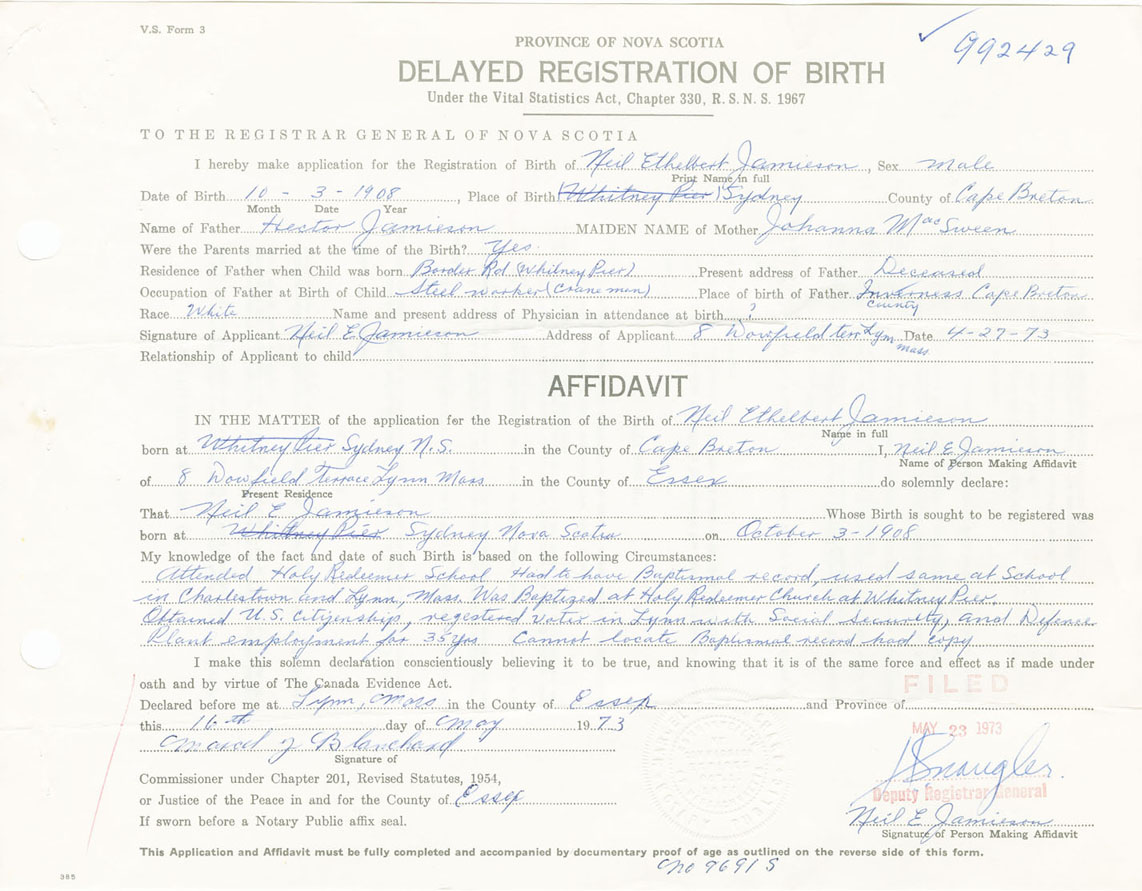 V.S. Form 3
✓ 992429
PROVINCE OF NOVA SCOTIA
DELAYED REGISTRATION OF BIRTH
Under the Vital Statistics Act, Chapter 330, R. S. N. S. 1967
TO THE REGISTRAR GENERAL OF NOVA SCOTIA
I hereby make application for the Registration of Birth of Neil Ethelbert Jamieson, Sex male
Print Name in full
Date of Birth 10 - 3 - 1908, Place of Birth (Whitney Pier) Sydney County of Cape Breton
Month Date Year
Name of Father Hector Jamieson MAIDEN NAME of Mother Johanna MacSween
Were the Parents married at the time of the Birth? Yes.
Residence of Father when Child was born Border Rd (Whitney Pier) Present address of Father Deceased
Occupation of Father at Birth of Child Steel worker (Crane man) Place of birth of Father Inverness Cape Breton
County
Race White Name and present address of Physician in attendance at birth ?
Signature of Applicant Neil E Jamieson Address of Applicant 8 Dowfield terr Lynn Date 4-27-73
Mass
Relationship of Applicant to child
AFFIDAVIT
IN THE MATTER of the application for the Registration of the Birth of Neil Ethelbert Jamieson
Name in full
born at Whitney Pier Sydney N.S. in the County of Cape Breton I, Neil E Jamieson
Name of Person Making Affidavit
of 8 Dowfield Terrace Lynn Mass in the County of Essex do solemnly declare:
Present Residence
That Neil E Jamieson Whose Birth is sought to be registered was
born at Whitney Pier Sydney Nova Scotia on October 3-1908
My knowledge of the fact and date of such Birth is based on the following Circumstances:
Attended Holy Redeemer School Had to have Baptismal record, used same at School
in Charlestown and Lynn, Mass. Was Baptized at Holy Redeemer Church at Whitney Pier.
Obtained U.S. Citizenship, registered voter in Lynn with Social security, and Defence
Plant employment for 35 yrs Cannot locate Baptismal record had copy
I make this solemn declaration conscientiously believing it to be true, and knowing that it is of the same force and effect as if made under
oath and by virtue of The Canada Evidence Act.
FILED
Declared before me at Lynn, Mass in the County of Essex and Province of
this 16th day of May 1973
MAY 23 1973
Marcel J Blanchard
Signature of
Commissioner under Chapter 201, Revised Statutes, 1954,
Deputy Registrar General
or Justice of the Peace in and for the County of Essex
Neil E Jamieson
If sworn before a Notary Public affix seal.
Signature of Person Making Affidavit
This Application and Affidavit must be fully completed and accompanied by documentary proof of age as outlined on the reverse side of this form.
No 9691 S
385